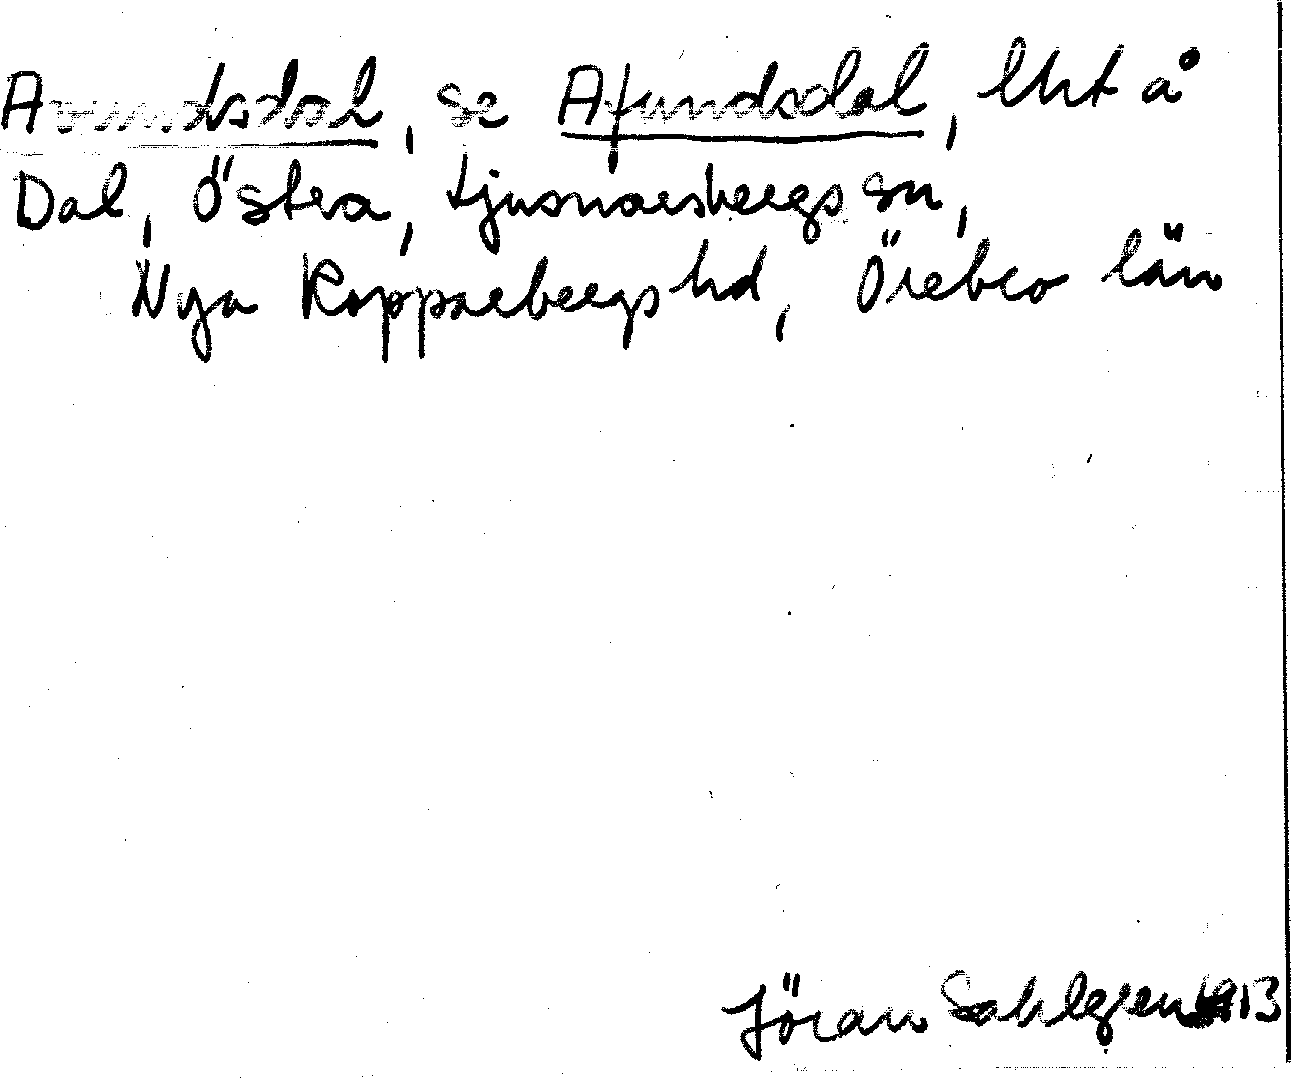 Avundsdal, se Afundsdal, lht å
Dal, Östra, Ljusnarsbergs sn,
Nya Kopparbergs hd, Örebro län
Jöran Sahlgren 1913